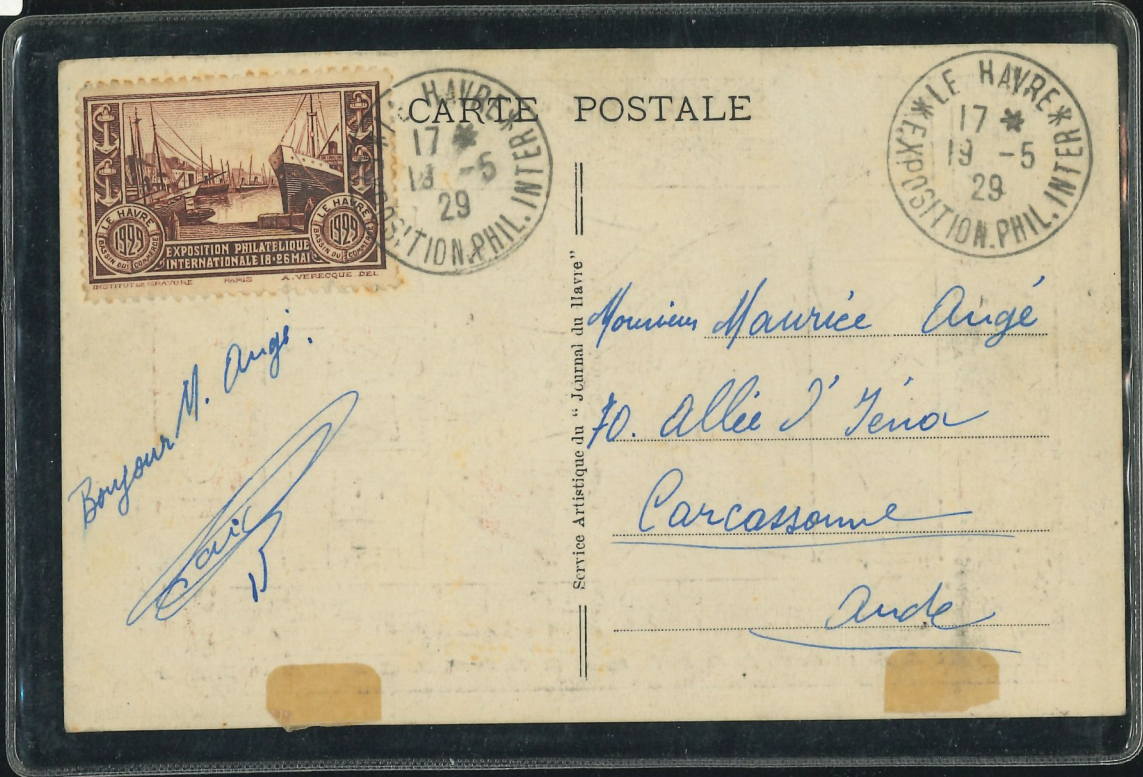 CARTE POSTALE
LE HAVRE
BASSIN DU COMMERCE
1929
LE HAVRE
BASSIN DU COMMERCE
1929
EXPOSITION PHILATELIQUE
INTERNATIONALE 18·26 MAI
INSTITUT DE GRAVURE PARIS A. VERECQUE DEL
LE HAVRE *
17 *
19 -5
29
EXPOSITION.PHIL.INTER
*LE HAVRE*
17 *
19 -5
29
EXPOSITION.PHIL.INTER
Bonjour M. Augé.
Service Artistique du "Journal du Havre"
Monsieur Maurice Augé
70. Allée d'Iéna
Carcassonne
Aude